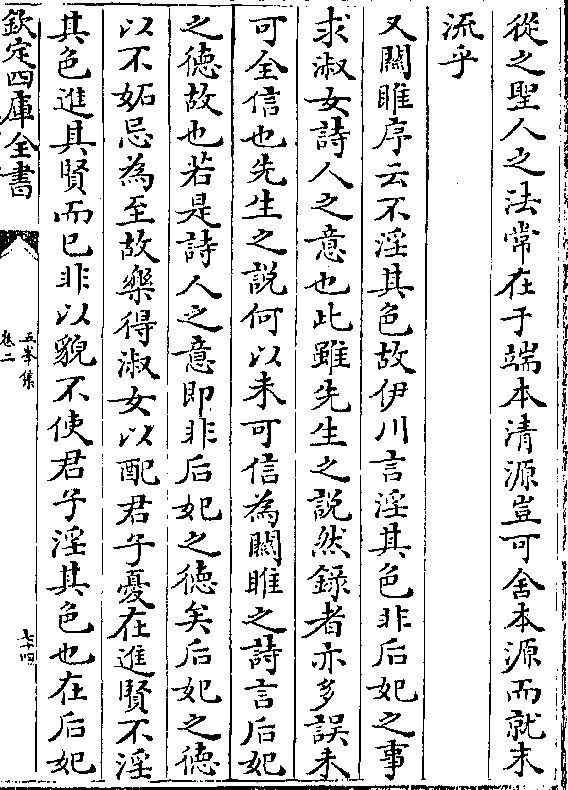 從之聖人之法常在于端本清源豈可舍本源而就末
流乎
又關雎序云不淫其色故伊川言淫其色非后妃之事
求淑女詩人之意也此雖先生之說然錄者亦多誤未
可全信也先生之說何以未可信為關雎之詩言后妃
之德故也若是詩人之意即非后妃之德矣后妃之德
以不妬忌為至故樂得淑女以配君子憂在進賢不淫
其色進其賢而已非以貌不使君子淫其色也在后妃
欽定四庫全書
五峯集
卷二
七十四